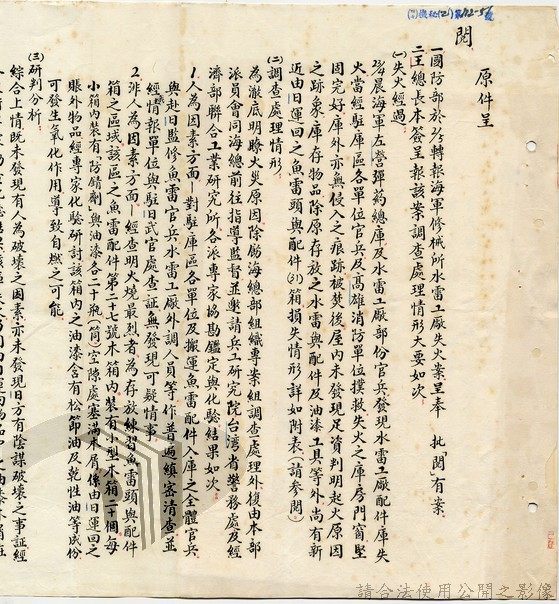 閱
原件呈
一國防部於　轉報海軍修械所水雷工廠失火案呈奉　批「閱」有案
二王總長本簽呈報該案調查處理情形大要如次
(一)失火經過
晨海軍左營彈葯總庫及水雷工廠部份官兵發現水雷工廠配件庫失
火當經駐庫區各單位官兵及髙雄消防單位撲救失火之庫房門窗堅
固完好庫外亦無侵入之痕跡被焚後屋內未發現足資判明起火原因
之跡象庫存物品除原存放之水雷與配件及油漆工具等外尚有新
近由日運回之魚雷頭與配件箱損失情形詳如附表（請參閱）
(二)調查處理情形
為澈底明瞭火災原因除勵海總部組織專案組調查處理外復由本部
派員會同海總前往指導監督並邀請兵工研究院台湾省警務處及經
濟部聯合工業研究所各派專家協勘鑑定與化驗結果如次
1.人為因素方面—對駐庫區各單位及搬運魚雷配件入庫之全體官兵
與赴日監修魚雷官兵水雷工廠外調人員等作普遍縝密清查並
經情報單位與駐日武官處查証無發現可疑情事
2.非人為因素方面—經查明火燒最烈者為存放練習魚雷頭與配件
箱之區域該區之魚雷配件第二七號木箱內裝有小型木箱二十個每
小箱內裝有防銹劑與油漆各二十瓶（筒）空隙處塞滿木屑係由日運回之
賬外物品經專家化驗研討該箱內之油漆含有松節油及乾性油等成份
可發生氧化作用導致自燃之可能
(三)研判分析
綜合上情既未發現有人為破壞之因素亦未發現日方有陰謀破壞之事証經
請合法使用公開之影像